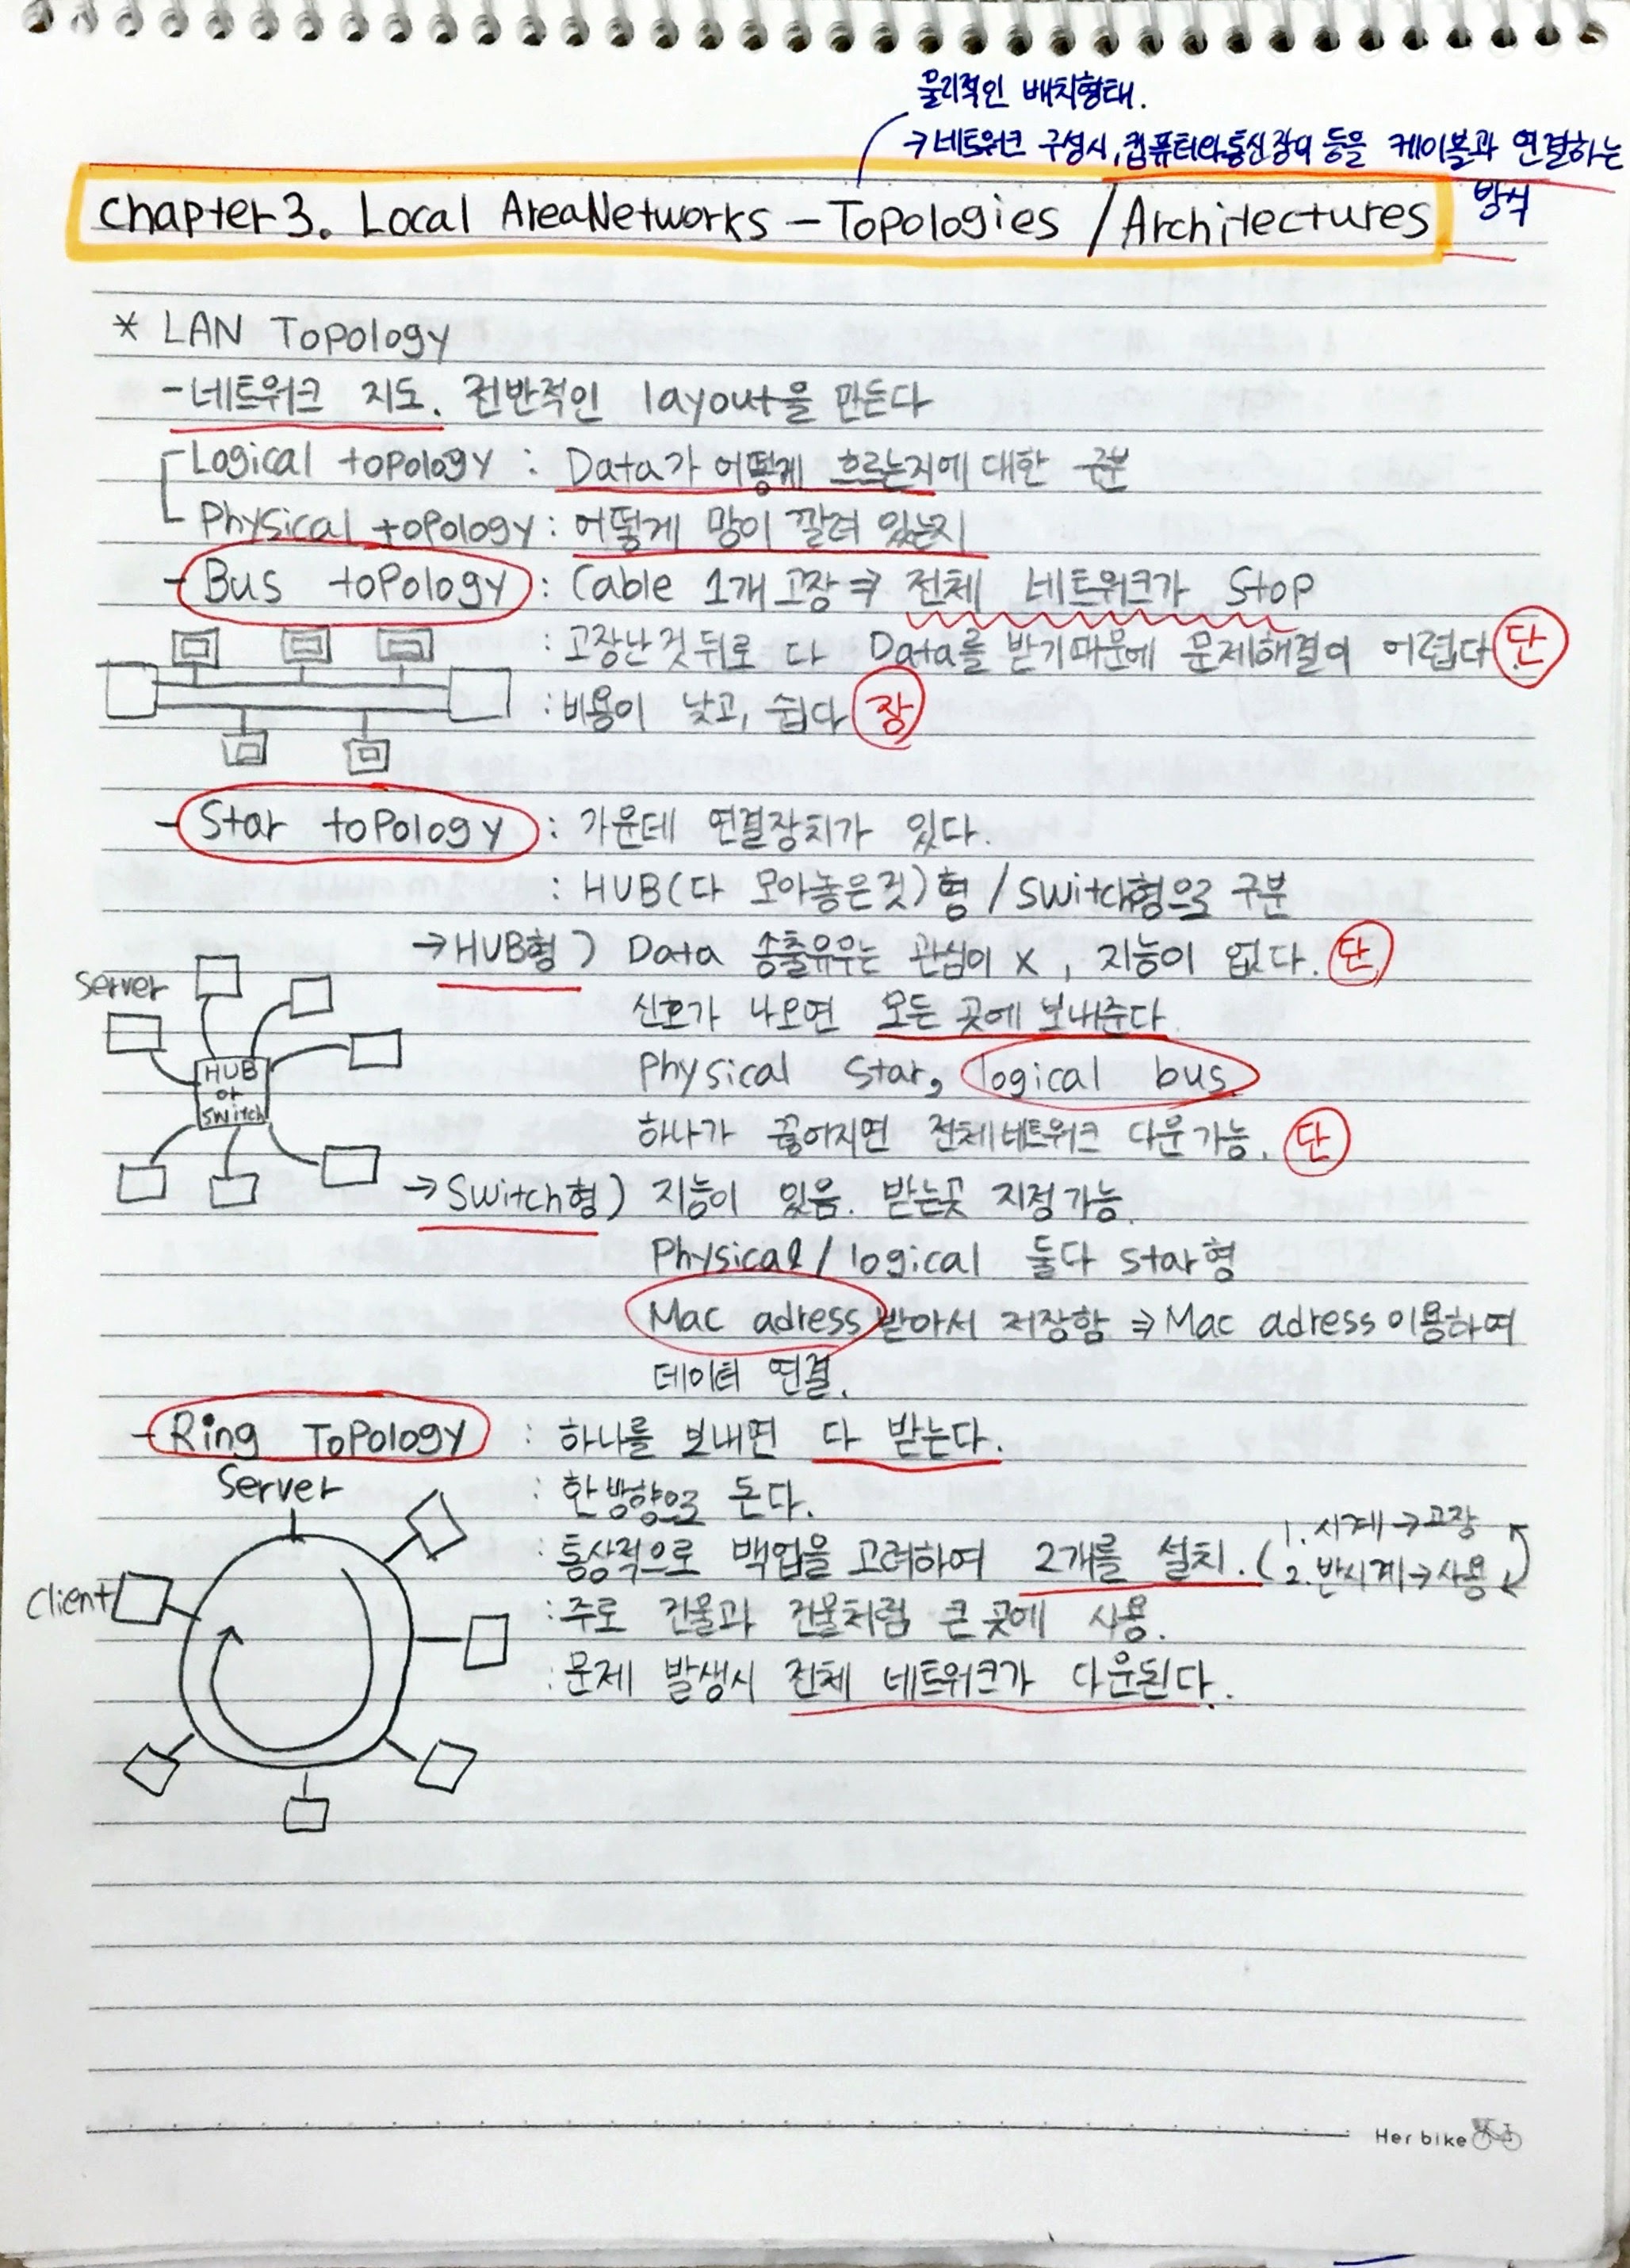 물리적인 배치형태.
→ 네트워크 구성시, 컴퓨터와 통신장비 등을 케이블과 연결하는
방식
Chapter3. Local AreaNetworks – Topologies / Architectures
* LAN Topology
- 네트워크 지도. 전반적인 layout을 만든다
Logical topology : Data가 어떻게 흐르는지에 대한 구분
Physical topology : 어떻게 망이 깔려 있는지
- Bus topology : Cable 1개 고장 ⇒ 전체 네트워크가 Stop
: 고장난것 뒤로 다 Data를 받기때문에 문제해결이 어렵다. 단
: 비용이 낮고, 쉽다 장
- Star topology : 가운데 연결장치가 있다.
: HUB(다 모아놓은것)형 / switch형으로 구분
→ HUB형) Data 송출유무는 관심이 x , 지능이 없다. 단
신호가 나오면 모든 곳에 보내준다.
Physical Star, logical bus
하나가 끊어지면 전체네트워크 다운가능. 단
Server
HUB
or
switch
→ Switch형) 지능이 있음. 받는곳 지정가능.
Physical / logical 둘다 star형
Mac adress 받아서 저장함 ⇒ Mac adress 이용하여
데이터 연결.
- Ring Topology : 하나를 보내면 다 받는다.
: 한방향으로 돈다.
: 통상적으로 백업을 고려하여 2개를 설치. ( 1. 시계 → 고장
2. 반시계 → 사용 )
: 주로 건물과 건물처럼 큰 곳에 사용.
: 문제 발생시 전체 네트워크가 다운된다.
Server
Client
Her bike